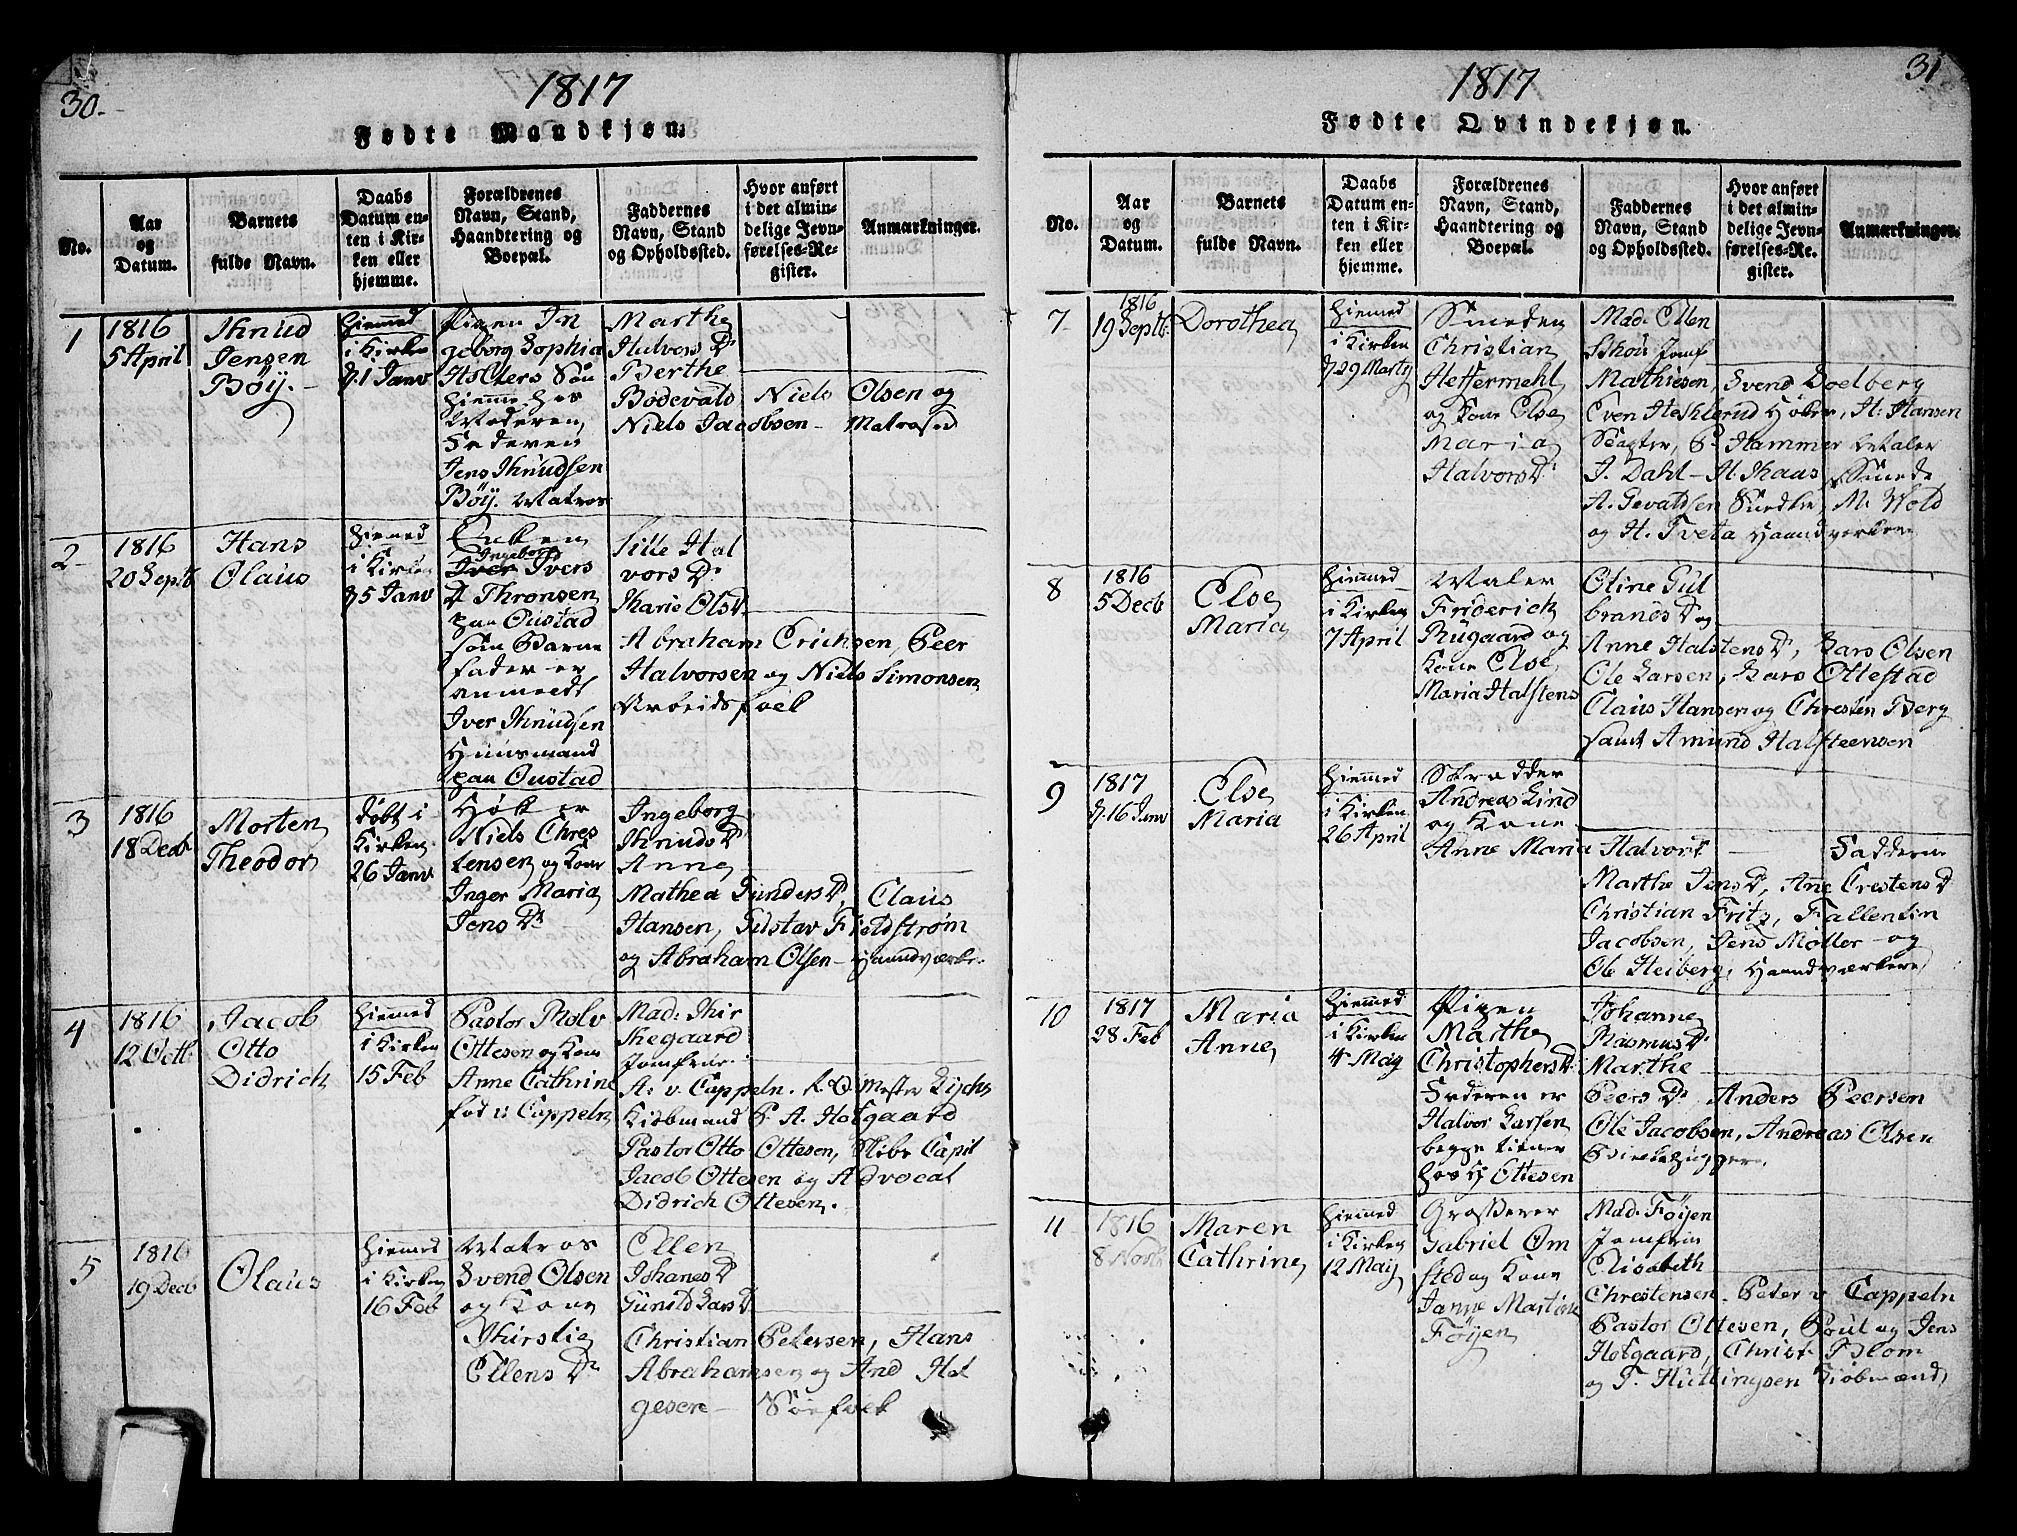 30.
1817
Fødte Mandkjøn.
No.
Aar
og
Datum.
Barnets
fulde Navn.
Daabs
Datum en-
ten i Kir-
ken eller
hjemme.
Forældrenes
Navn, Stand,
Haandtering og
Boepæl.
Faddernes
Navn, Stand
og Opholdssted.
Hvor anført
i det almin-
delige Jevn-
førelses-Re-
gister.
Anmærkninger.
1
1816
5 April
Khnud
Jensen
Bøij.
Hiemmed
i Kirken
d. 1 Janv
Pigen In
geborg Sophia
Holters Søn
hiemme hos
Moderen,
Faderen
Jens Khnudsen
Bøij. Matros
Marthe
Halvors Dr
Berthe
Bodevalds Niels Olsen og
Niels Jacobsen - Matroser
2
1816
20 Septb
Hans
Olaus
Hiemmed
i Kirken
d. 5 Janv
Enken
Ingeborg
Iver Ivers
Dr Thronsen
paa Oustad
som Barne
fader er
anmeldt
Iver Khnudsen
Huusmand
paa Oustad
Sille Hal
vors Dr
Kharie Olsdr
Abraham Erichsen, Peer
Halvorsen og Niels Simonsen
Arbeidsfolk
3
1816
18 Decb
Morten
Theodor
døbt i
Kirken
26 Janv
Høker
Niels Chres
tensen og Kone
Inger Maria
Jens Dr
Ingeborg
Khnuds Dr
Anne
Mathea Gunders Dr, Claus
Hansen, Gustav Fieldstrøm
og Abraham Olsen - Haandværke.
4
1816
12 Octb
Jacob
Otto
Didrich
Hiemmed
i Kirken
15 Feb
Pastor Rolv
Ottesen og Kone
Anne Cathrine
fød v: Cappeln
Mad: Khir
khegaard
Jomfrue
A: v. Cappeln.
Kiøbmand P. A. Hofgaard
Pastor Otto Ottesen, Skibs Capit
Jacob Ottesen og Advocat
Didrich Ottesen.
5
1816
19 Decb
Olaus
Hiemmed
i Kirken
16 Feb
Matros
Svend Olsen
og Kone
Khirstie
Ellens Dr
Ellen
Johanes Dr
Gunild Lars Dr
Christian Petersen, Hans
Abrahamsen og And Hel
gesen - Søefolk
31
1817
Fødte Qvindekjøn.
No.
Aar
og
Datum.
Barnets
fulde Navn.
Daabs
Datum en-
ten i Kir-
ken eller
hjemme.
Forældrenes
Navn, Stand,
Haandtering og
Boepæl.
Faddernes
Navn, Stand
og Opholdssted.
Hvor anført
i det almin-
delige Jevn-
førelses-Re-
gister.
Anmærkninger.
7
1816
19 Septb:
Dorothea
Hiemmed
i Kirken
d. 29 Martj
Smeden
Christian
Heffermehl
og Kone Else
Maria
Halvors Dr
Mad: Ellen
Skou Jomf
Mathiesen, Svend Doelberg
Even Heshlerud Høker, H: Hansen
Slagter, P: Hammer Maler
J. Dahl - H. Khaus Smede
A. Gevaldsen Snedker M. Wold
og H. Tveta Haandværkere
8
1816
5 Decb
Else
Maria
Hiemmed
i Kirken
7 April
Maler
Friderich
Rugaard og
Kone Else
Maria Halstens
Oline Gul
brands Dr og
Anne Halstens Dr, Lars Olsen
Ole Larsen, Lars Ottestad
Claus Hansen og Christen Berg
samt Amund Halsteensen
9
1817
d. 16 Janv
Else
Maria
Hiemmed
i Kirken
26 April
Skrædder
Andreas Lind
og Kone
Anne Maria Halvors - Fadderne
Marthe Jens Dr, Ane Crestens Dr
Christian Fritz, Fallentin
Jacobsen, Jens Møller og
Ole Heiberg, Haandværkere
10
1817
28 Feb
Maria
Anne
Hiemmed
i Kirken
4 Maij
Pigen
Marthe
Christophers Dr
Faderen er
Halvor Larsen
begge tiener
hos H Ottesen
Johanne
Rasmus Dr
Marthe
Peers Dr Anders Peersen
Ole Jacobsen, Andreas Olsen
11
1816
8 Novb
Maren
Cathrine
Hiemmed
i Kirken
12 Maij
Grosserer
Gabriel Om
sted og Kone
Janne Martine
Føijen
Mad: Føijen
Jomfru
Elisabeth
Christensen. Peter v Cappeln
Pastor Ottesen, Poul og Jens
Hofgaard, Christ: Blom
og F. Huttingsen Kiøbmænd